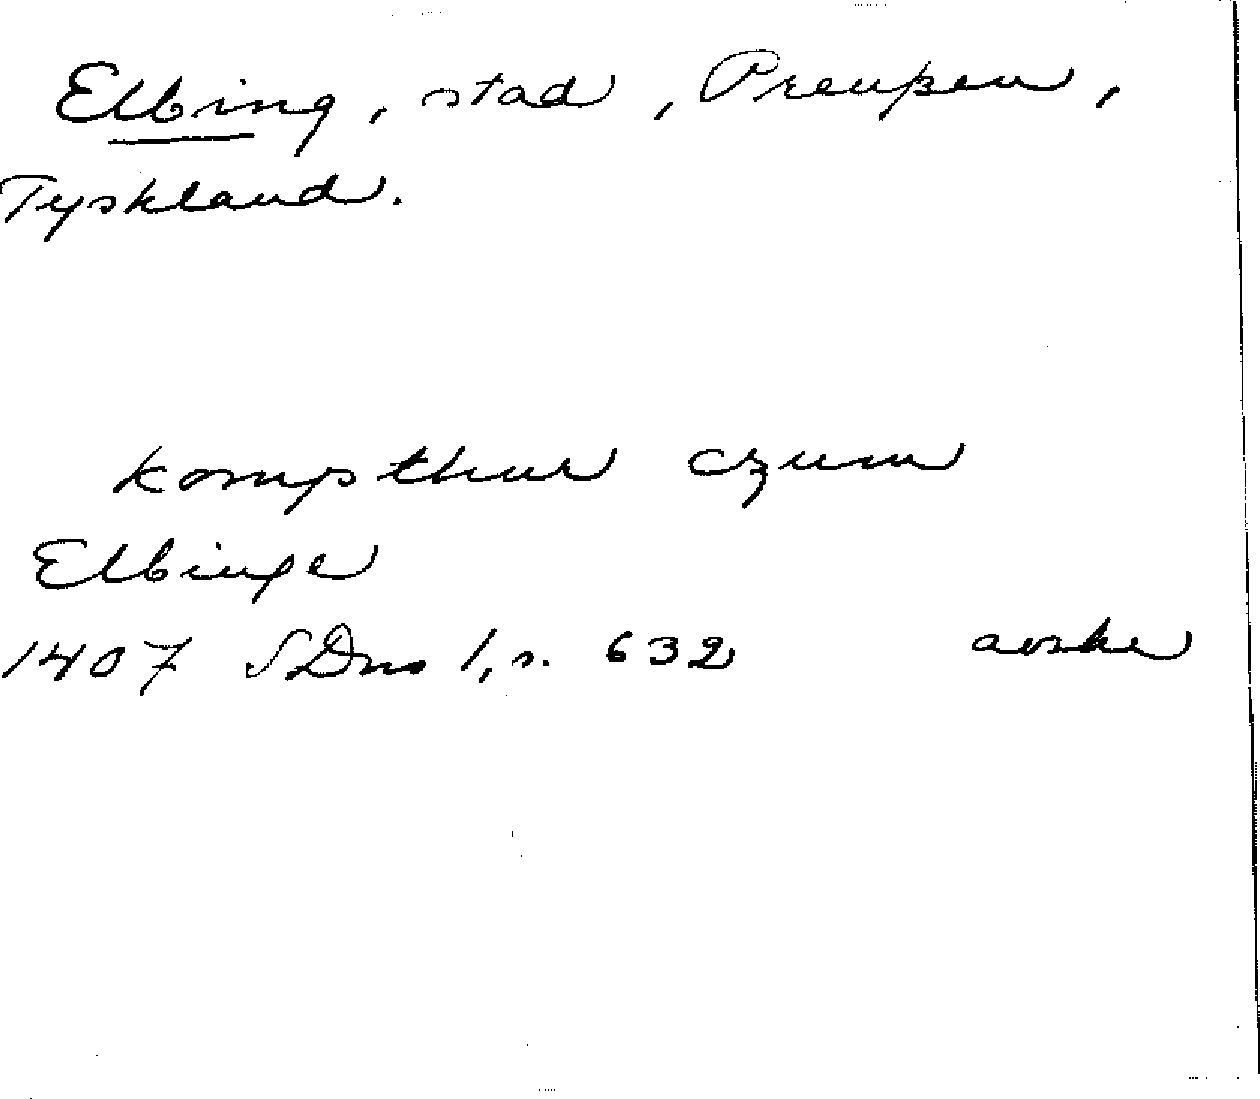 Elbing, stad, Preußen,
Tyskland.
kompthur czum
Elbinge
1407 SDns 1, s. 632 avskr